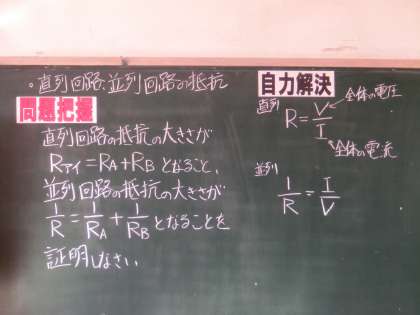 。直列回路、並列回路の抵抗
問題把握
直列回路の抵抗の大きさが
Rアイ=RA+RBとなること、
並列回路の抵抗の大きさが
1/R=1/RA+1/RBとなることを
証明しなさい
自力解決
直列
R=V/I
全体の電圧
全体の電流
並列
1/R=I/V